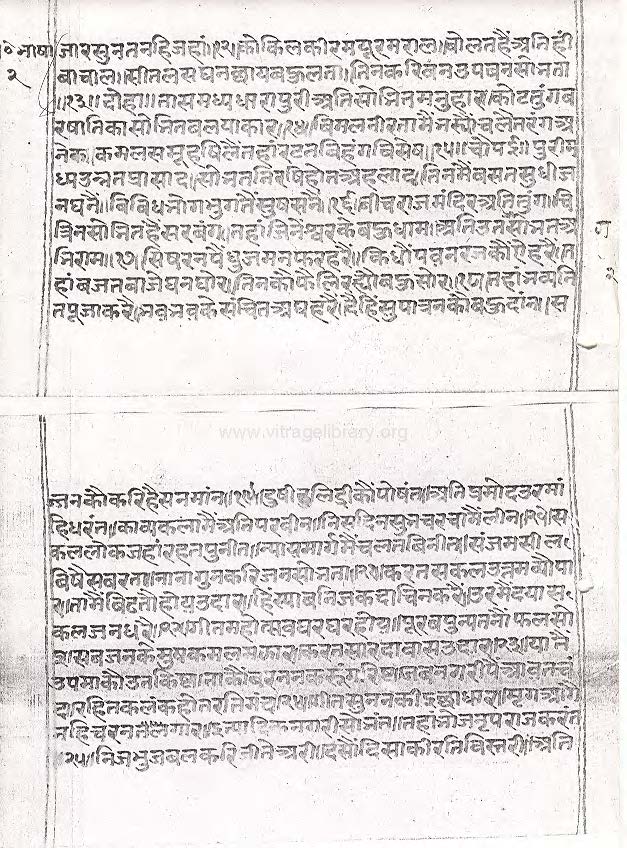 भाषा
२
जारसुनतनहिजहां॥१२॥कोकिलकीरमयूरमराल॥बोलतहैंअतिही
बाचाल॥सीतलसघनछायबकुलता॥तिनकरिवनउपवनसोभता
॥१३॥दोहा॥तासमध्यधारापुरीअतिसोभितमनुहार॥कोटतुंगब
रषातिकासोभितबलयाकार॥१४॥बिमलनीरतामैंभस्यौचलैतरंगअ
नेक॥कमलसमूहषिलैतहांरटतबिहंगविसेष॥१५॥चौपई॥पुरीम
ध्यउन्नतप्रासाद॥सोभतनिरषिहोतअहलाद॥तिनमैंबसतसुधीज
नघनै॥बिबिधभोगभुगतेंसुषसनै॥१६॥बीचराजमंदिरअतितुंग॥चि
त्रितसोभितहैसरबंग॥तहांजिनेश्वरकेबहुधाम॥अतिउतसोभनअ
भिराम॥१७॥सिषरनपैंधुजमनफरहरै॥किधौंपवनरजकौंऐहरै॥त
हांबजतबाजेघनघोर॥तिनकौफैलिरह्यौबहुसोर॥१८॥तहांभव्यनि
तपूजाकरै॥भवभवकेसंचितअघहरै॥देहिसुपात्रनकोबहुदांन॥स
२
www.vitragelibrary.org
ज्जनकौकरिहैसनमांन॥१९॥दुषीदुलिद्रीकौंपोषंत॥अतिप्रमोदउरमां
हिधरंत॥काव्यकलामैंअतिपरवीन॥निसदिनसुनचरचामैंलीन॥२०॥स
कललोकजहांरहतपुनीत॥न्यायमार्गमैंचलतबिनीत॥संजमसील
बिषैसबरता॥नानागुनकरिजनसोभता॥२१॥करतसकलउत्तमब्यौपा
र॥तामैंबितौहोयउदार॥हिंस्याबनिजकदाचिनकरै॥उरमैंदयास
कलजनधरै॥२२॥गीतमहोत्सवघरघरहीय॥पूरबपुन्यतनौंफलसो
य॥सबजनकेमुषकमलमझार॥करतसारदाबासउदार॥२३॥यातैं
उपमाकौउतकिष्ट॥ताकौंबरननकसंगरिष्ट॥जबनगरीपैंआवतचं
दा॥रहितकलंकहोतरतिमंद॥२४॥गीतसुननकीइछाधार॥मृगआंग
नहिचरनतैंलगार॥इत्यादिकनगरीसोभंत॥तहांभोजनृपराजकरंत
॥२५॥निजभुजबलकरिजीतेअरी॥दसोंदिसाकीरतिविस्तरी॥अति